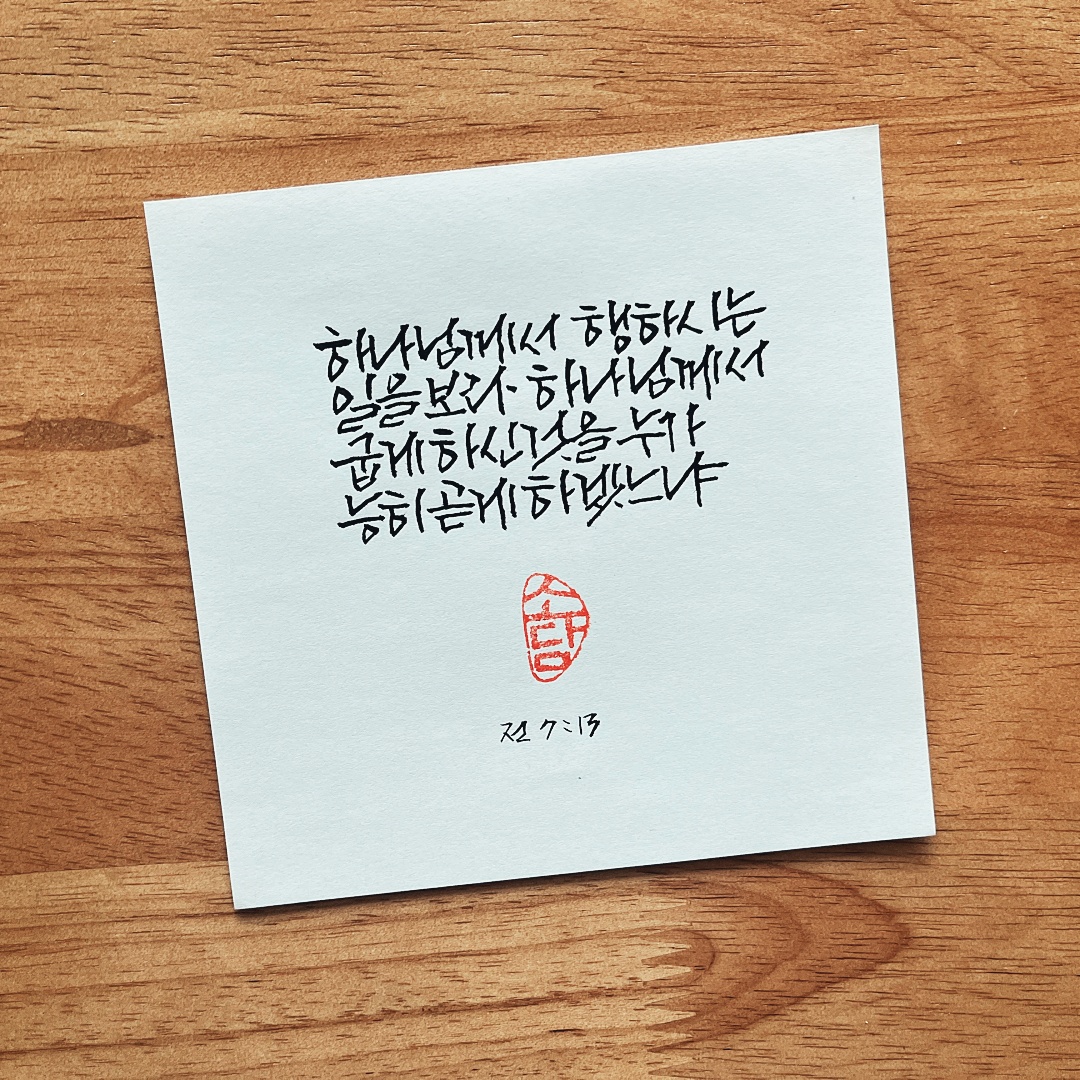 하나님께서 행하시는
일을 보라. 하나님께서
굽게 하신 것을 누가
능히 곧게 하겠느냐
소담
전 7:13